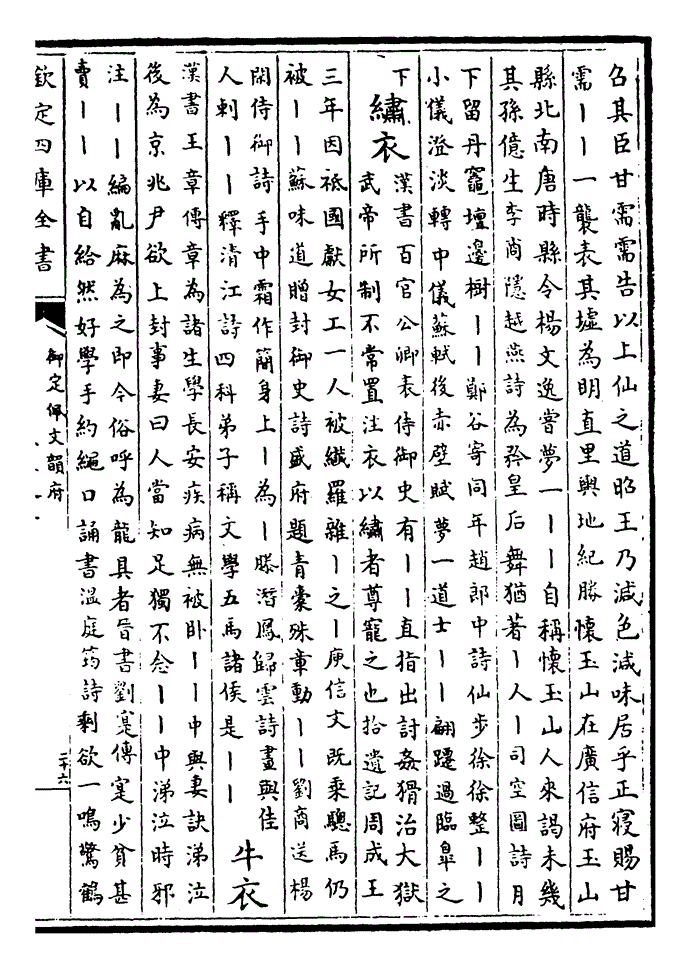 召其臣甘需需告以上仙之道昭王乃減色減味居乎正寢賜甘
需丨丨一襲表其墟為明直里輿地紀勝懷玉山在廣信府玉山
縣北南唐時縣令楊文逸嘗夢一丨丨自稱懷玉山人來謁未幾
其孫億生李商隱越燕詩為矜皇后舞猶著丨人丨司空圖詩月
下留丹竈壇邊樹丨丨鄭谷寄同年趙郎中詩仙步徐徐整丨丨
小儀澄淡轉中儀蘇軾後赤壁賦夢一道士丨丨翩躚過臨臯之
下
繡衣
漢書百官公卿表侍御史有丨丨直指出討姦猾治大獄
武帝所制不常置注衣以繡者尊寵之也拾遺記周成王
三年因祗國獻女工一人被纖羅雜丨之丨庾信文既乘驄馬仍
被丨丨蘇味道贈封御史詩盛府題青囊殊章動丨丨劉商送楊
閑侍御詩手中霜作簡身上丨為丨滕潛鳳歸雲詩畫與佳
人刺丨丨釋清江詩四科弟子稱文學五馬諸侯是丨丨
牛衣
漢書王章傳章為諸生學長安疾病無被卧丨丨中與妻訣涕泣
後為京兆尹欲上封事妻曰人當知足獨不念丨丨中涕泣時邪
注丨丨編亂麻為之即今俗呼為龍具者晉書劉寔傳寔少貧甚
賣丨丨以自給然好學手約繩口誦書溫庭筠詩剩欲一鳴驚鶴
欽定四庫全書
御定佩文韻府
二十六